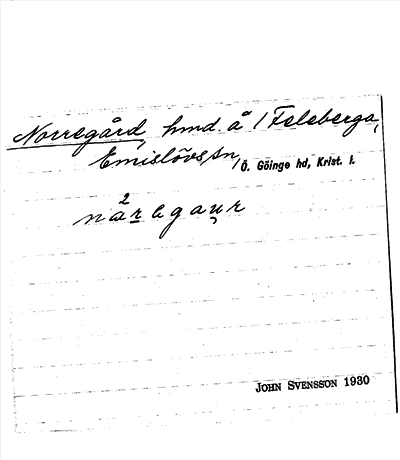 Norregård, hmd. å 1 Felsberga,
Emislövs sn, Ö. Göinge hd, Krist. l.
nå²regau̯r
JOHN SVENSSON 1930